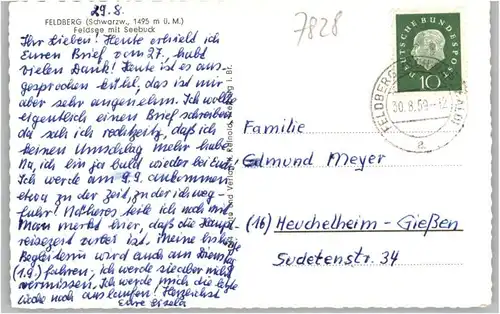 29.8.
7828
FELDBERG (Schwarzw., 1495 m ü. M.)
Feldsee mit Seebuck
Ihr Lieben! Heute erhielt ich
Euren Brief vom 27. habt
vielen Dank! Heute ist es aus-
gesprochen kühl, das ist mir
aber sehr angenehm. Ich wollte
eigentlich einen Brief schreiben
da sah ich rechtzeitig, daß ich
keinen Umschlag mehr habe.
Na, ich bin ja bald wieder bei Euch.
Ich werde am 9.9. ankommen
etwa zu der Zeit, zu der ich weg-
fuhr! Näheres teile ich noch mit.
Man merkt hier, daß die Haupt-
reisezeit vorbei ist. Meine bisherige
Begleiterin wird auch am Dienstag
(1.9.) fahren, ich werde sie aber nicht
vermissen. Ich werde mich die letzte
Woche noch auslaufen! Herzlichst
Eure Gisela
DEUTSCHE BUNDESPOST
10
FELDBERG
30.8.59.-12
a
Familie
Edmund Meyer
(16) Heuchelheim-Gießen
Sudetenstr. 34